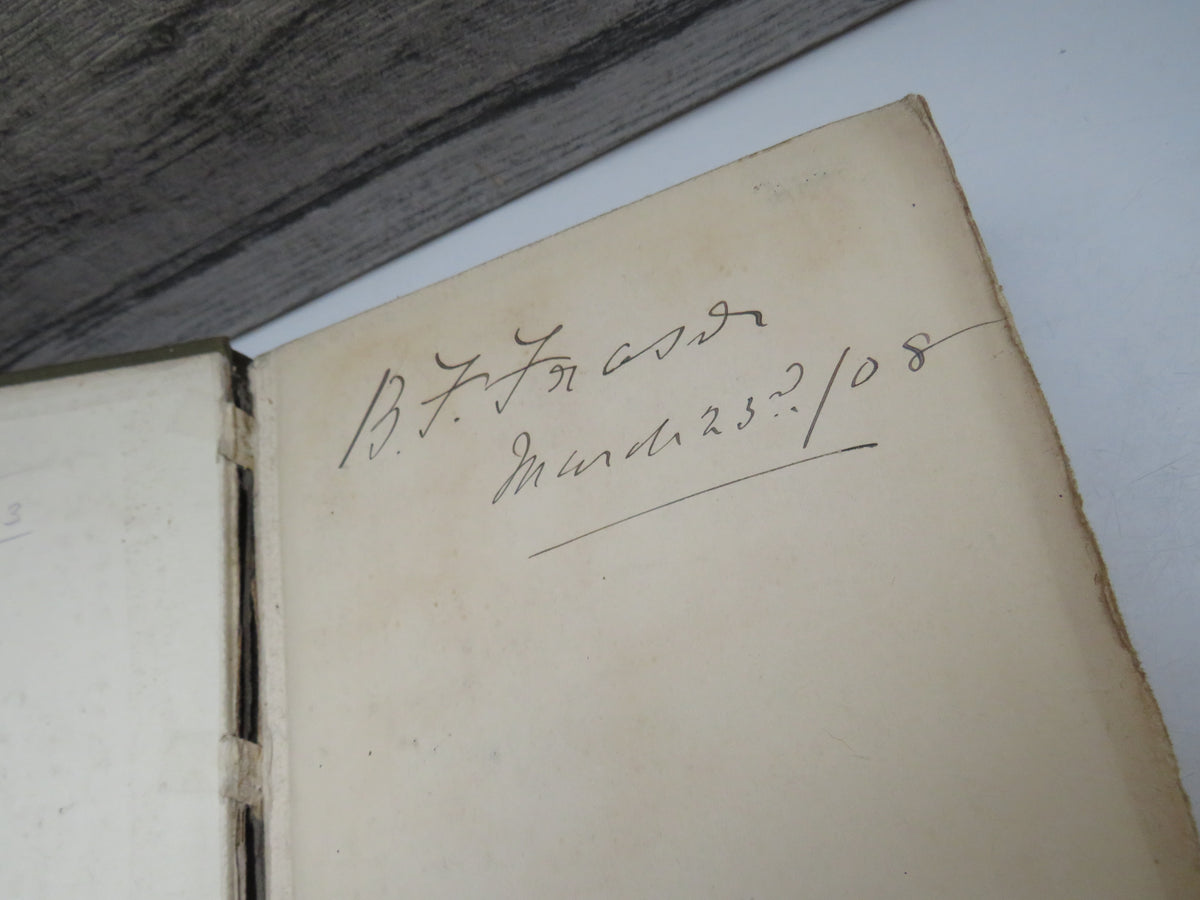 B. F. Fraser
March 23rd/08
3